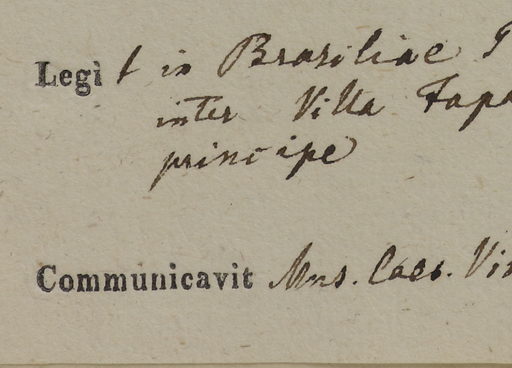 Legit in Brasiliae P
inter Villa Fapa
principe
Communicavit Mus. Caes. Vin